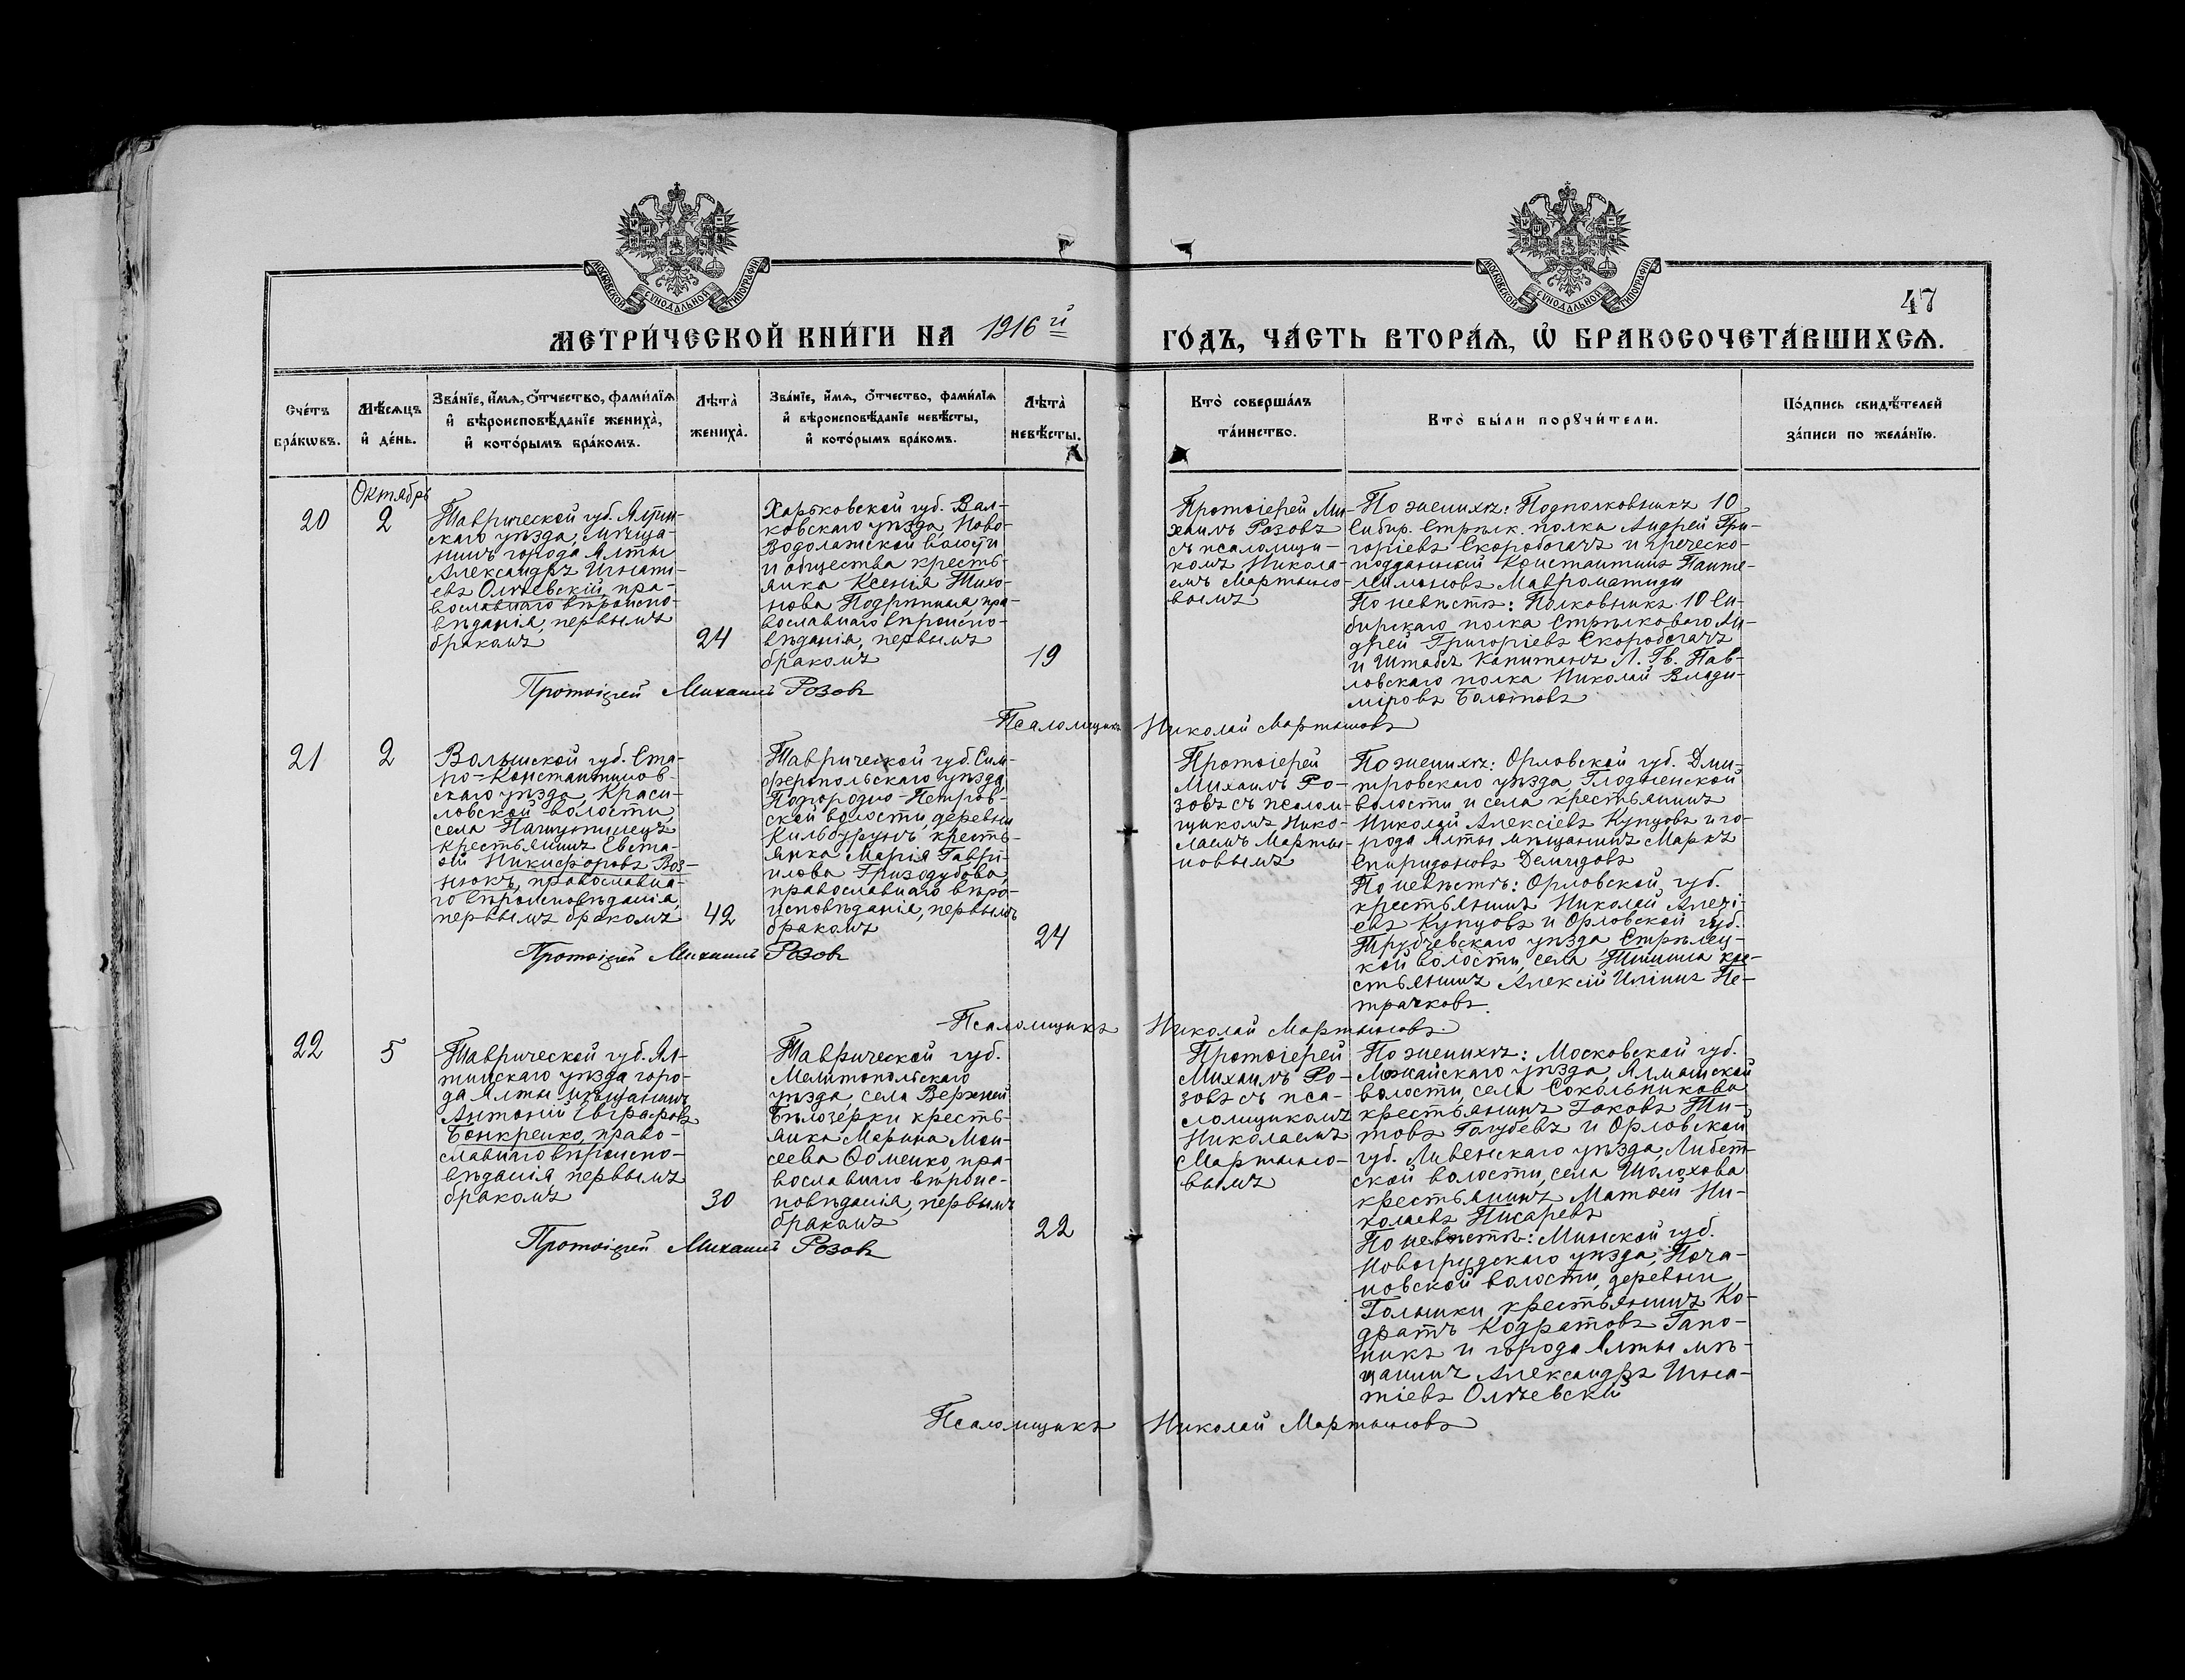 МОСКОВСКОЙ СѴНОДАЛЬНОЙ ТИПОГРАФІИ
МОСКОВСКОЙ СѴНОДАЛЬНОЙ ТИПОГРАФІИ
47
МЕТРИ́ЧЕСКОЙ КНИ́ГИ НА 1916й ГО́ДЪ, ЧА́СТЬ ВТОРА́Ѧ, Ѽ БРАКОСОЧЕТА́ВШИХСѦ.
Сче́тъ
бра́кѡвъ.
Мѣ́сѧцъ
и҆ де́нь.
Зва́нїе, и҆́мѧ, ѻ҆́тчество, фами́лїѧ
и҆ вѣроисповѣ́данїе жениха̀,
и҆ кото́рымъ бра́комъ.
Лѣта̀
жениха̀.
Зва́нїе, и҆́мѧ, ѻ҆́тчество, фами́лїѧ
и҆ вѣроисповѣ́данїе невѣ́сты,
и҆ кото́рымъ бра́комъ.
Лѣта̀
невѣ́сты.
Кто̀ соверша́лъ
та́инство.
Кто̀ бы́ли порꙋчи́тели.
По́дпись свидѣ́телей
за́писи по жела́нїю.
Октябрь
20
2
Таврической губ. Ялтин-
скаго уѣзда, мѣща-
нинъ города Ялты
Александръ Игнаті-
евъ Олѣевскій, пра-
вославнаго вѣроиспо-
вѣданія, первымъ
бракомъ
24
Харьковской губ. Вал-
ковскаго уѣзда, Ново-
Водолажской волости
и общества кресть-
янка Ксенія Тихо-
нова Подрѣпная, пра-
вославнаго вѣроиспо-
вѣданія, первымъ
бракомъ
19
Протоіерей Ми-
хаилъ Розовъ
съ псаломщи-
комъ Никола-
емъ Мартыно-
вымъ
По женихѣ: Подполковникъ 10
Сибир. Стрѣлк. полка Андрей Гри-
горіевъ Скоробогачъ и греческо-
подданный Константинъ Панте-
леимоновъ Мавроматиди
По невѣстѣ: Полковникъ 10 Си-
бирскаго полка Стрѣлковаго Ан-
дрей Григоріевъ Скоробогачъ
и Штабсъ Капитанъ Л. Гв. Пав-
ловскаго полка Николай Влади-
міровъ Болотовъ
Протоіерей Михаилъ Розовъ
Псаломщикъ Николай Мартыновъ
21
2
Волынской губ. Ста-
ро-Константинов-
скаго уѣзда, Краси-
ловской волости,
села
крестьянинъ Евста-
фій Никифоровъ Воз-
нюкъ, православна-
го вѣроисповѣданія,
первымъ бракомъ
42
Таврической губ. Сим-
феропольскаго уѣзда
Подгородно-Петров-
ской волости, деревни
Кильбурунъ, кресть-
янка Марія Гаври-
лова Гризодубова,
православнаго вѣро-
исповѣданія, первымъ
бракомъ
24
Протоіерей
Михаилъ Ро-
зовъ съ псалом-
щикомъ Нико-
лаемъ Марты-
новымъ
По женихѣ: Орловской губ. Дми-
тровскаго уѣзда, Глодненской
волости и села крестьянинъ
Николай Алексіевъ Купцовъ и го-
рода Ялты мѣщанинъ Маркъ
Спиридоновъ Демидовъ
По невѣстѣ: Орловской губ.
крестьянинъ Николай Алексі-
евъ Купцовъ и Орловской губ.
Трубчевскаго уѣзда, Стрѣлец-
кой волости, села кре-
стьянинъ Алексій Иліинъ Пе-
трачковъ.
Протоіерей Михаилъ Розовъ
Псаломщикъ Николай Мартыновъ.
22
5
Таврической губ. Ял-
тинскаго уѣзда горо-
да Ялты мѣщанинъ
Антоній Евграфовъ
Бонкренко, право-
славнаго вѣроиспо-
вѣданія, первымъ
бракомъ
30
Таврической губ.
Мелитопольскаго
уѣзда, села Верхней
Бѣлозерки кресть-
янка Марина Мои-
сеева Фоменко, пра-
вославнаго вѣроис-
повѣданія, первымъ
бракомъ
22
Протоіерей
Михаилъ Ро-
зовъ съ пса-
ломщикомъ
Николаемъ
Мартыно-
вымъ
По женихѣ: Московской губ.
Можайскаго уѣзда,
волости, села Сокольникова
крестьянинъ Іаковъ Ти-
товъ Голубевъ и Орловской
губ. Ливенскаго уѣзда,
ской волости, села Шолохова
крестьянинъ Матѳей Ни-
колаевъ Писаревъ
По невѣстѣ: Минской губ.
Новогрудскаго уѣзда, Поча-
повской волости, деревни
Голынки крестьянинъ Ко-
дратъ Кодратовъ Гапо-
никъ и города Ялты мѣ-
щанинъ Александръ Игна-
тіевъ Олѣевскій
Протоіерей Михаилъ Розовъ
Псаломщикъ Николай Мартыновъ